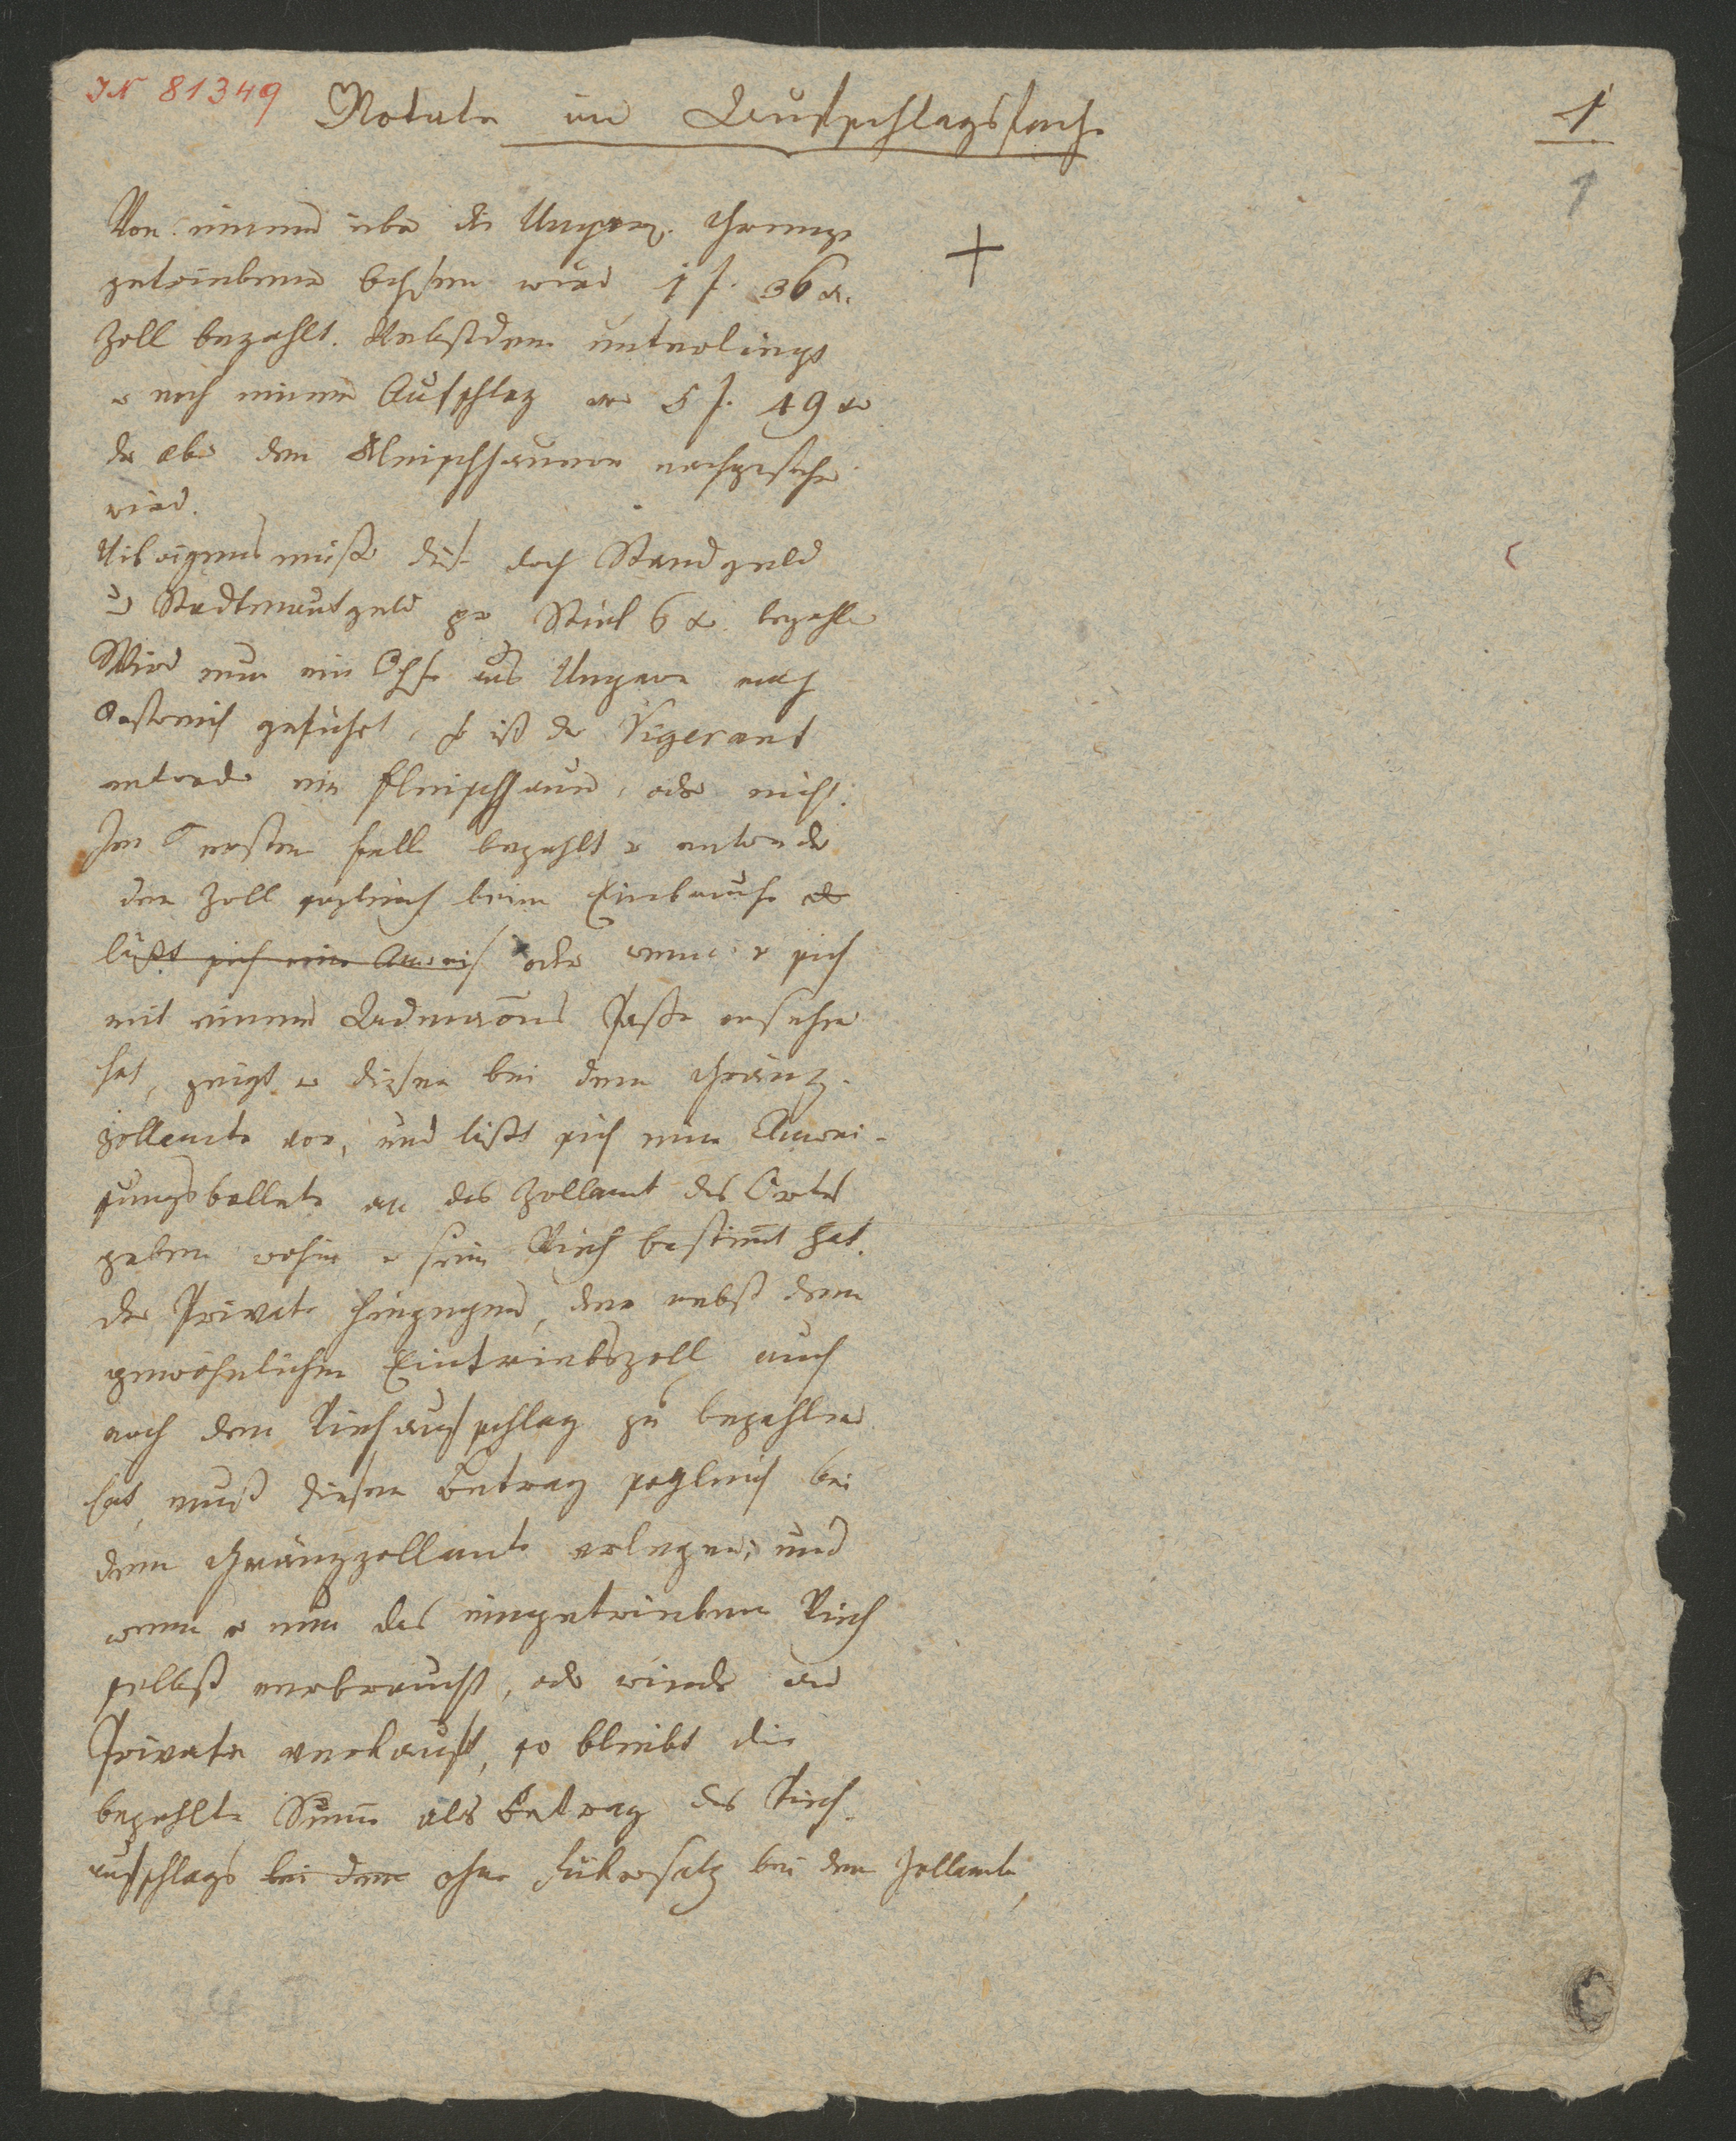 IN 81349
Notata in Aufschlagssache
1
1
Von einem über die Ungar. Gränze
getriebenen Ochsen wird 1 f. 36 x.
Zoll bezahlt. Nebstdem unterliegt
er noch einem Aufschlag von 5 f. 49 x
der aber den Fleischhauern nachgesehen
wird.
Uibrigens müssen diese doch Standgeld
u Stadtmautgeld per Stück 6 x. bezahlen
Wird nun ein Ochse aus Ungarn nach
Oestreich geführt, so ist der
entweder ein Fleischhauer, oder nicht.
Im ersten Falle bezahlt er entweder
den Zoll sogleich beim Einbruche
läßt sich eine oder wenn er sich
mit einem Passe versehen
hat, zeigt er diesen bei dem Gränz-
zollamte vor, und läßt sich eine Anwei-
sungsbollete an das Zollamt des Ortes
geben wohin er sein Vieh bestimt hat.
Der Private hingegen, der nebst dem
gewöhnlichen Eintriebszoll auch
noch den Viehaufschlag zu bezahlen
hat, muß diesen Betrag sogleich bei
dem Gränzzollamte erlegen; und
wenn er nun das eingetriebene Vieh
selbst verbraucht, oder wieder an
Private verkauft, so bleibt die
bezahlte Sume als Betrag des Vieh-
aufschlags bei dem ohne Rükersatz bei dem Zollamte,